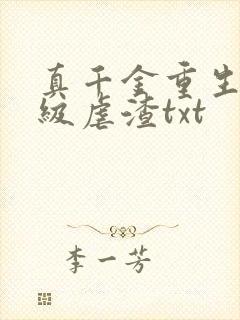 真千金重生
级虐渣txt
李一芳